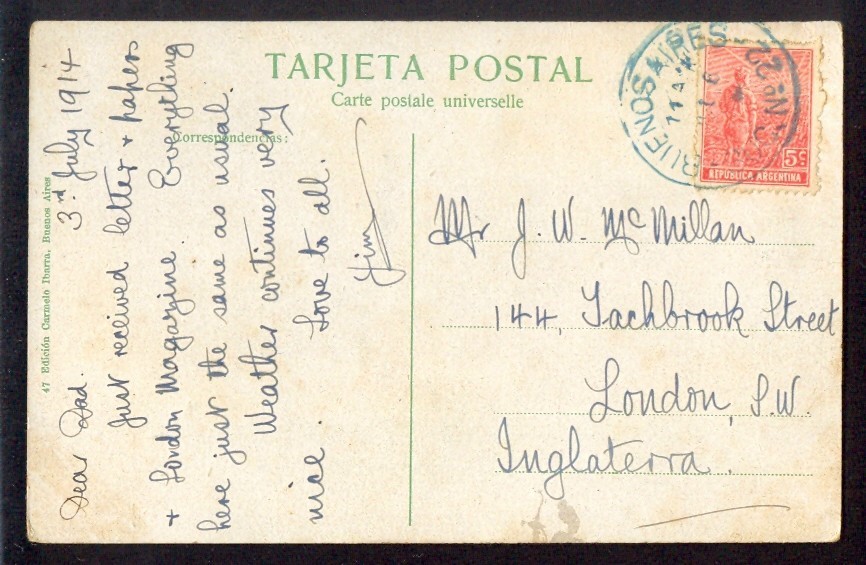 TARJETA POSTAL
Carte postale universelle
Correspondencias:
47 Edición Carmelo Ibarra. Buenos Aires
3rd July 1914
Dear Dad.
Just received letter + papers
+ London Magazine. Everything
here just the same as usual.
Weather continues very
nice. Love to all.
Jim
BUENOS AIRES
22
5c
REPUBLICA ARGENTINA
Mr J. W. McMillan
144, Tachbrook Street
London, S.W.
Inglaterra.